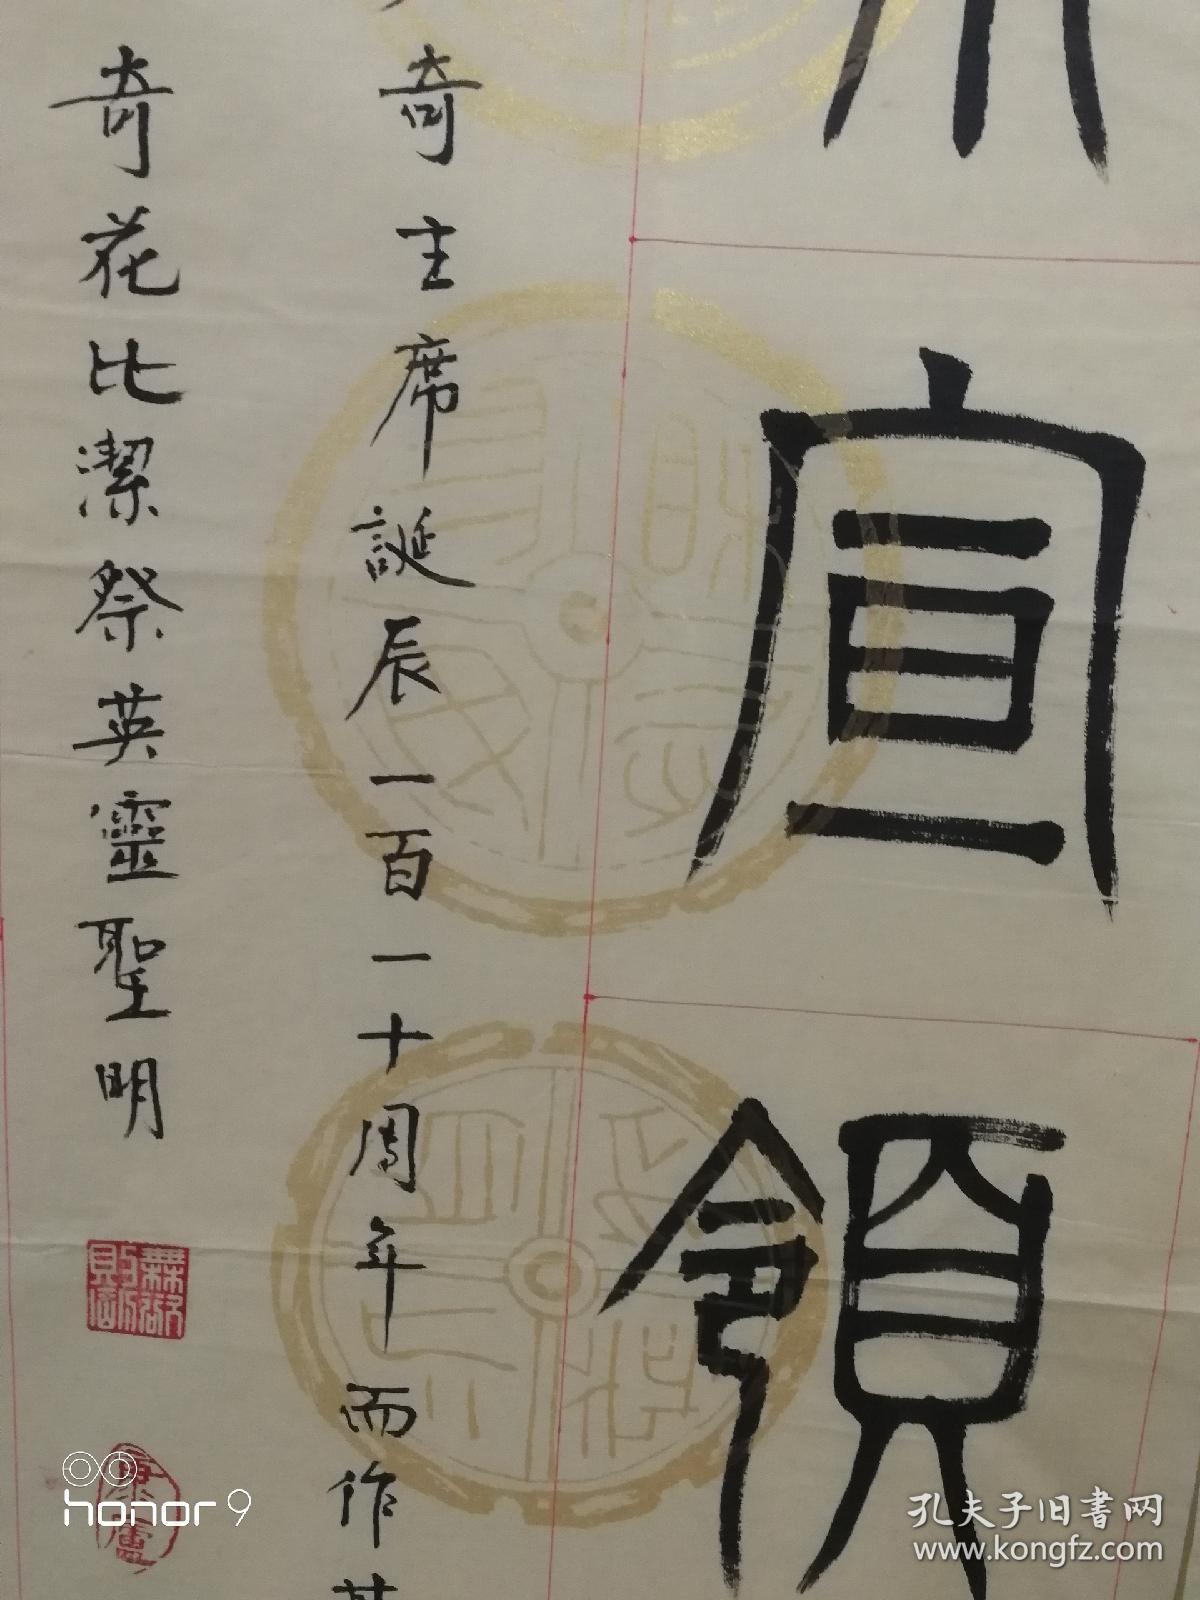 宣領
奇主席誕辰一百一十周年而作其
奇花比潔祭英靈聖明
honor 9
孔夫子旧書网
www.kongfz.com